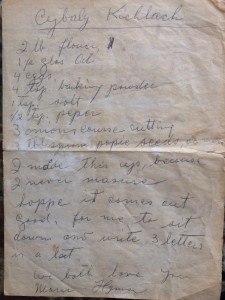 Cybaly Kuchlach
2 lb flour
1/2 glas Oil
4 eggs
4 tsp baking powder
1 tsp salt
1/2 tsp. peper
3 onions course cutting
3 tbl spoon popie seeds
I made this up, because
I never
hoppe it comes out
good, for me to sit
down and write 3 letters
is a lot.
we both love you
Mom